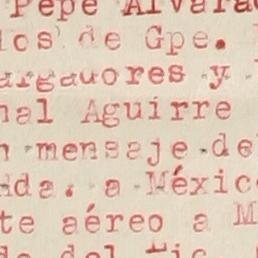 Pepe Alvara
ios de Gpe.
argadores y
nal Aguirre
n mensaje de
nda. a Méxic
te aéreo a M
de del Lic